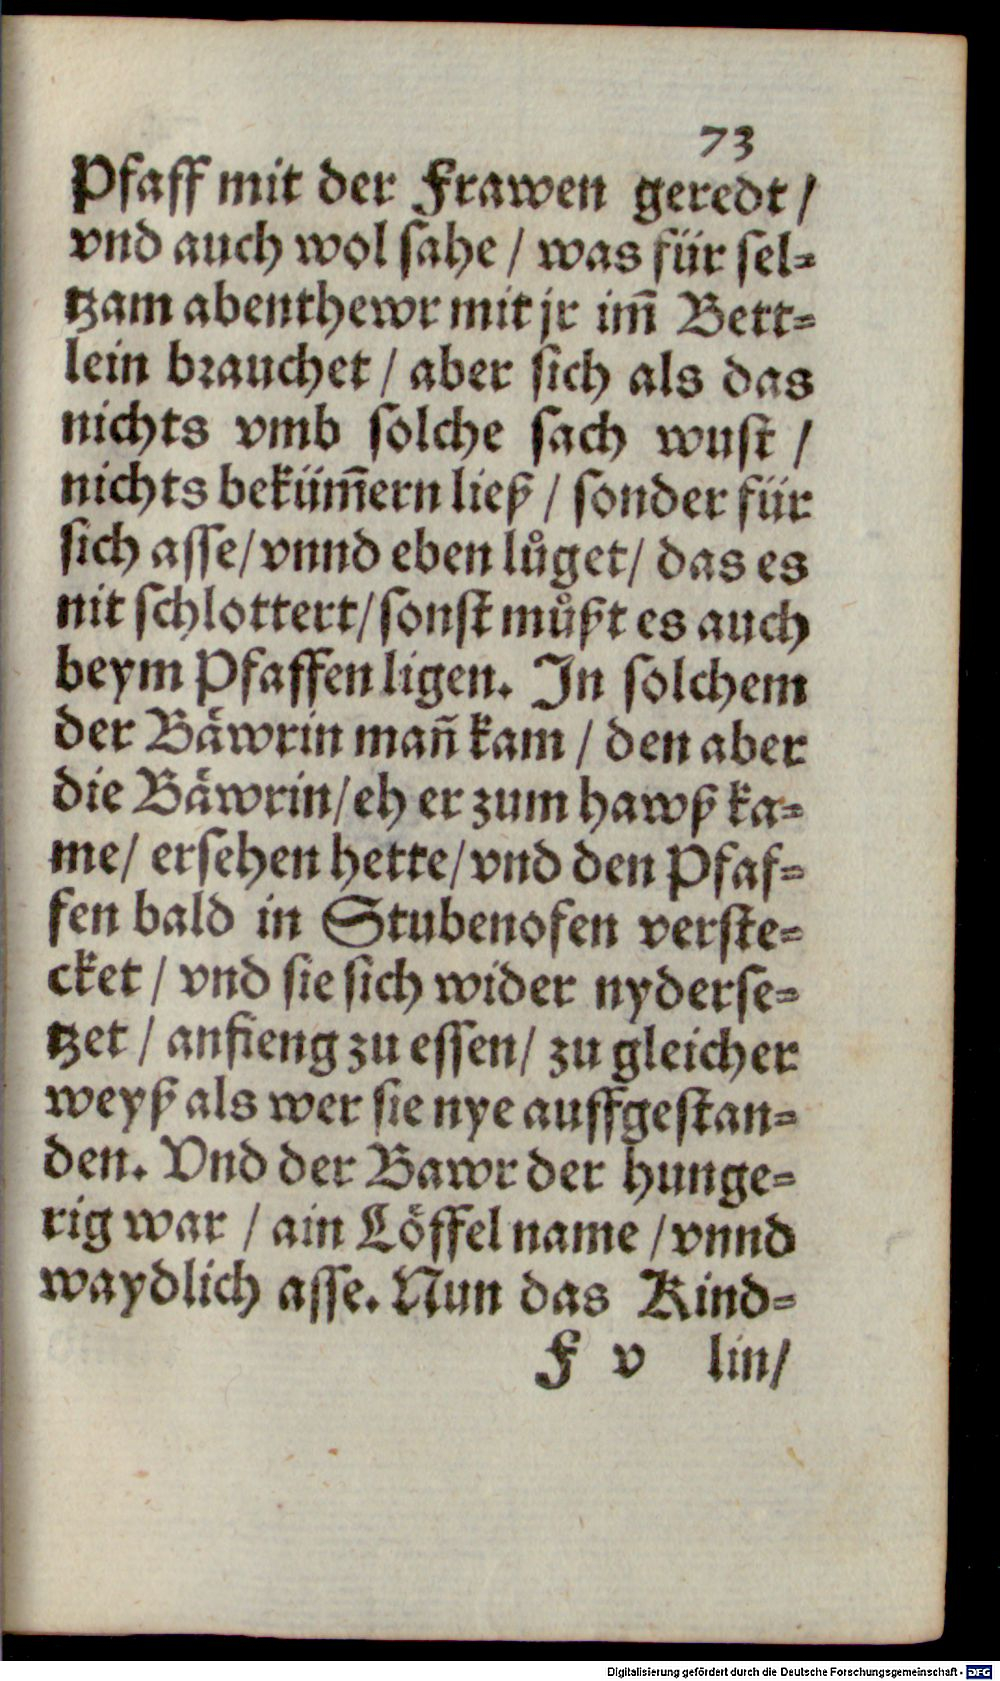 73
Pfaff mit der Frawen geredt /
vnd auch wol sahe / was für sel-
tzam abenthewr mit jr im̃ Bett-
lein brauchet / aber sich als das
nichts vmb solche sach wust /
nichts beküm̃ern ließ / sonder für
sich asse / vnnd eben lůget / das es
nit schlottert / sonst můßt es auch
beym Pfaffen ligen. In solchem
der Bäwrin mañ kam / den aber
die Bäwrin / eh er zum hawß ka-
me / ersehen hette / vnd den Pfaf-
fen bald in Stubenofen verste-
cket / vnd sie sich wider nyderse-
tzet / anfieng zu essen / zu gleicher
weyß als wer sie nye auffgestan-
den. Vnd der Bawr der hunge-
rig war / ain Löffel name / vnnd
waydlich asse. Nun das Kind-
F v lin /
Digitalisierung gefördert durch die Deutsche Forschungsgemeinschaft - DFG